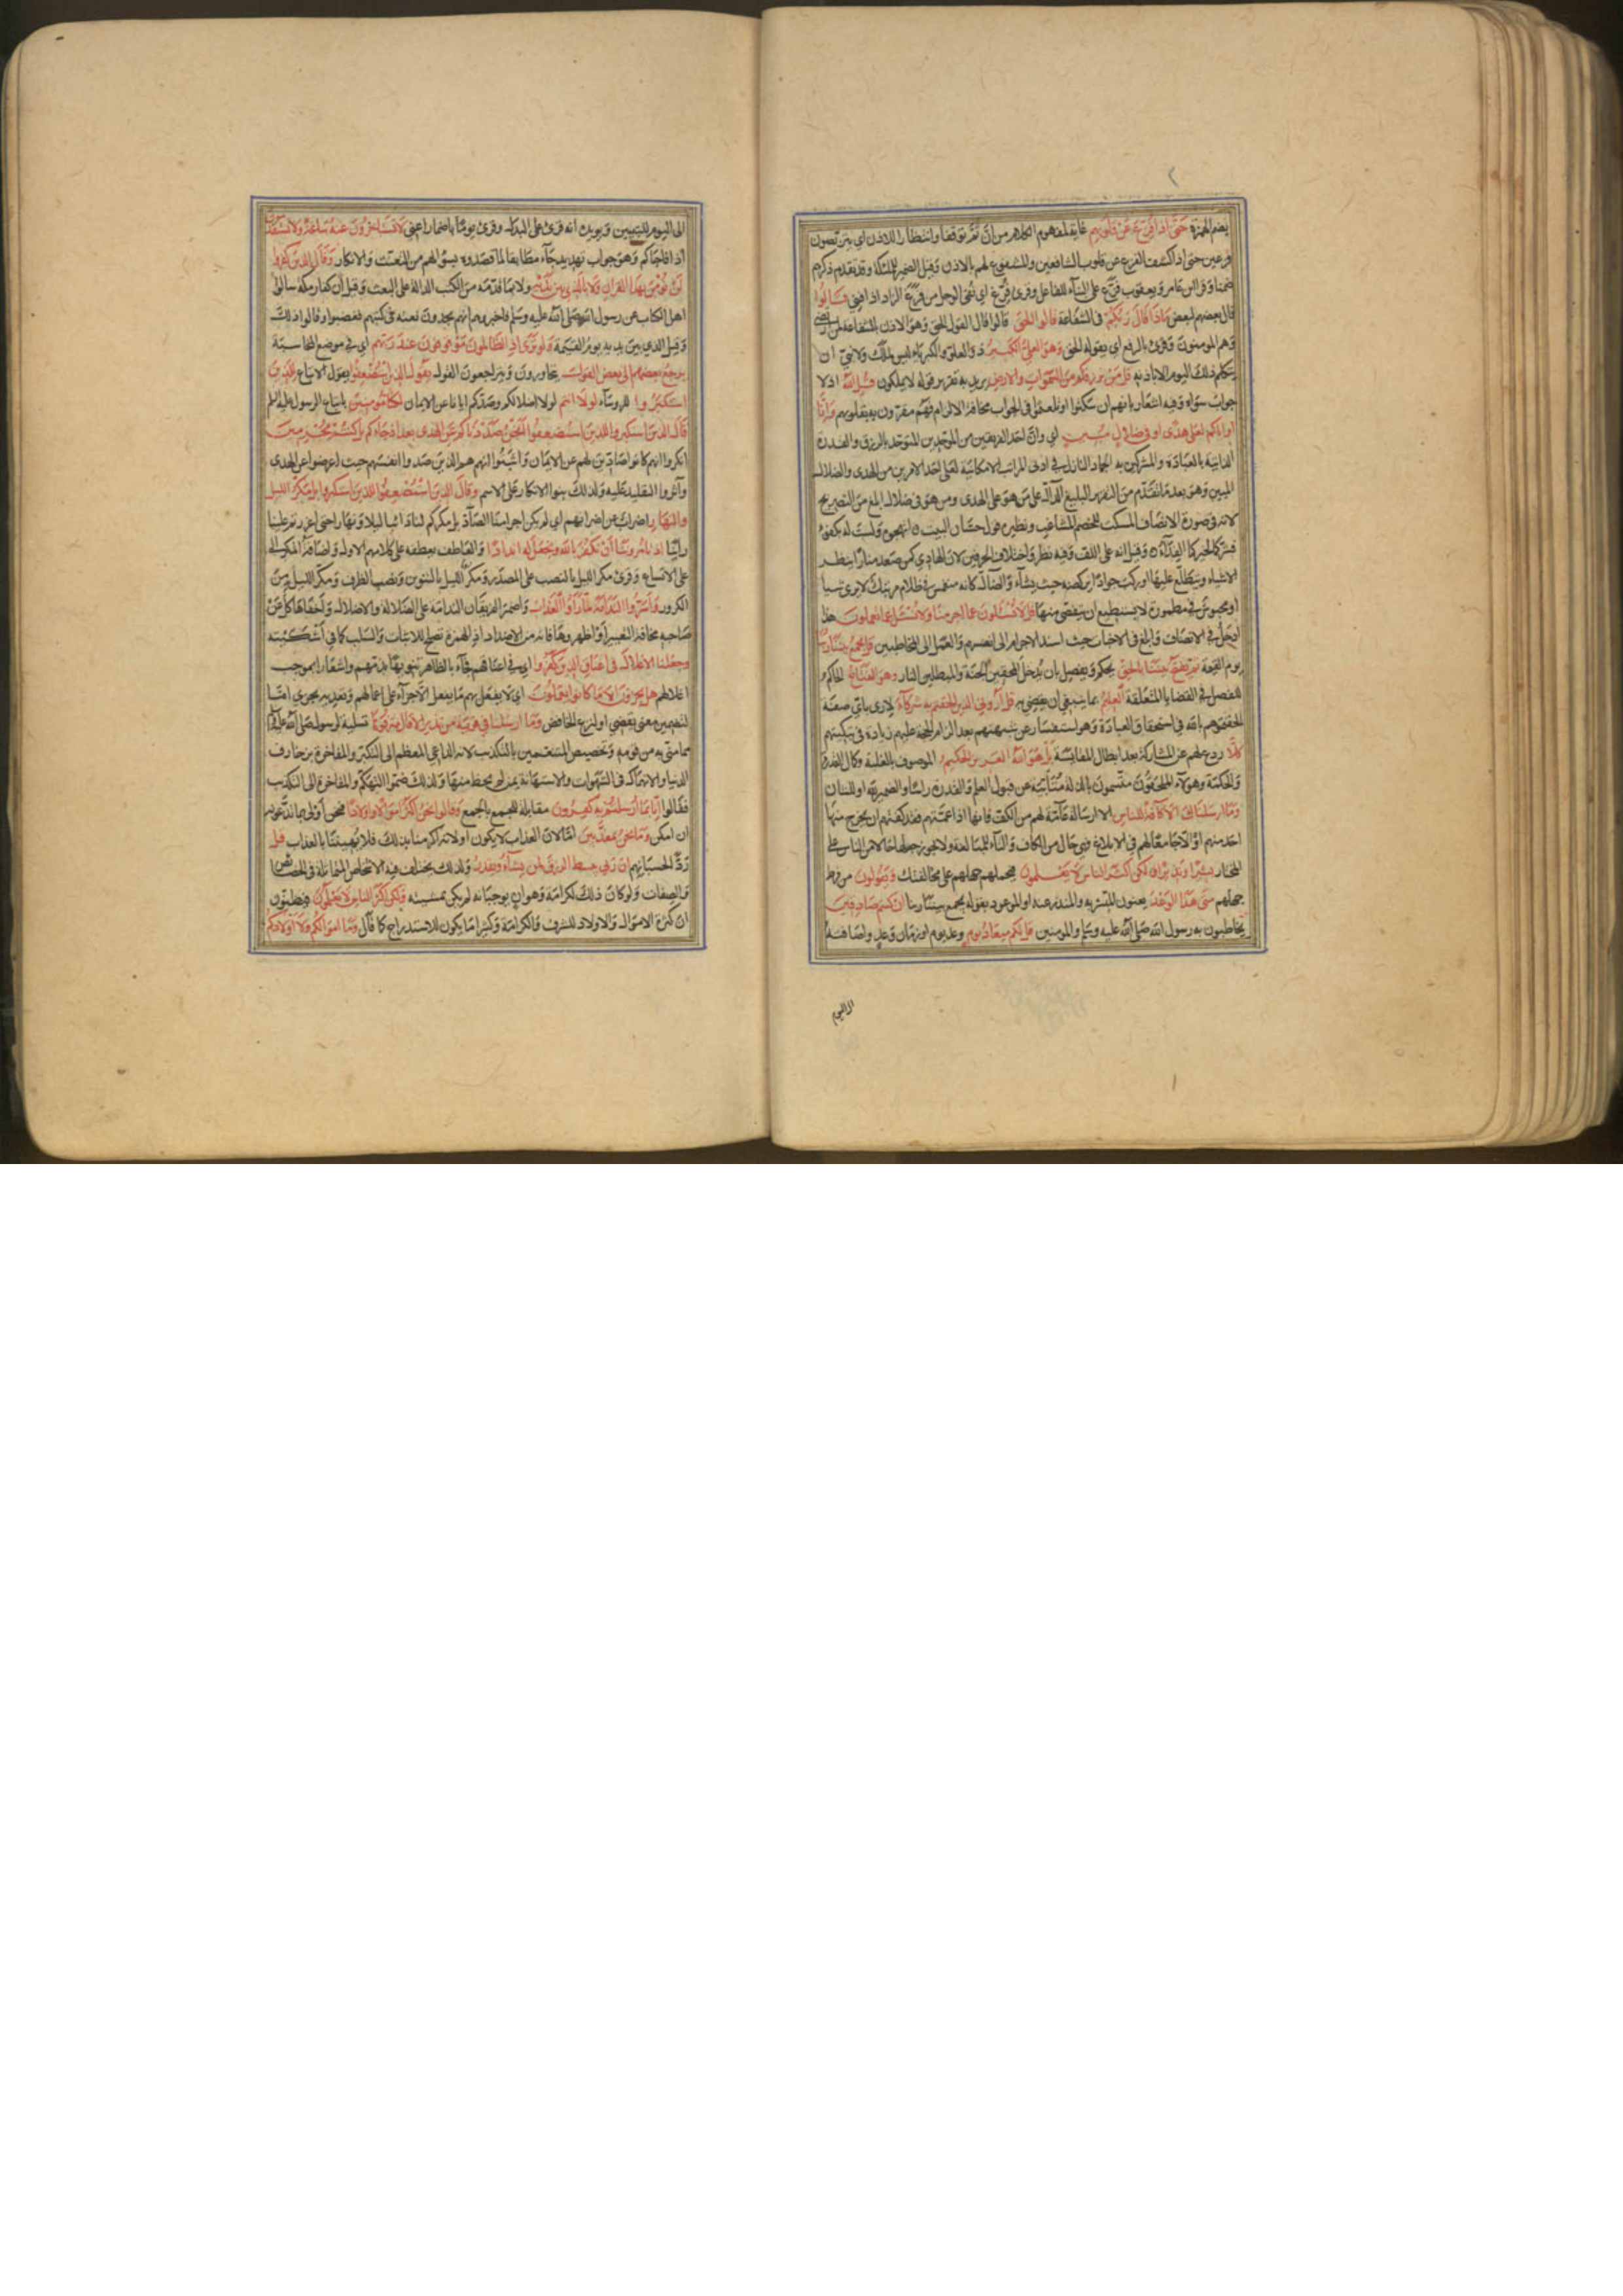 بضم الهمزة حَتَّى اِذَا فُزِّعَ عَنْ قُلُوبِهِمْ غاية لمفهوم الكلام من انّ ثمّ توقفا وانتظارا للاذن اي يتربصون
فزعين حتى اذا كشف الفزع عن قلوب الشافعين والمشفوع لهم بالاذن وقيل الضمير للملئكة وقد تقدم ذكرهم
ضمنا وقرا ابن عامر ويعقوب فزّع على البناء للفاعل وقرئ فرّغ اي نفى الوجل من فرغ الزاد اذا فني قالوا
قال بعضهم لبعض ماذا قال ربكم في الشفاعة قالوا الحق قالوا قال القول الحق وهو الاذن بالشفاعة لمن ارتضى
وهم المومنون وقرئ بالرفع اي مقوله الحق وهو العلي الكبير ذو العلو والكبرياء ليس لملك ولا نبي ان
يتكلم ذلك اليوم الا باذنه قل من يرزقكم من السموات والارض يريد به تقرير قوله لا يملكون قل الله اذ لا
جواب سواه وفيه اشعار بانهم ان سكتوا او تلعثموا في الجواب مخافة الالزام فهم مقرون به بقلوبهم وانا
او اياكم لعلى هدى او في ضلال مبين اي وان احد الفريقين من الموحدين المتوحد بالرزق والقدرة
الذاتية بالعبادة والمشركين به الجماد النازل في ادنى المراتب الامكانية لعلى احد الامرين من الهدى والضلال
المبين وهو بعد ما تقدم من التقرير البليغ الدال على من هو على الهدى ومن هو في ضلال ابلغ من التصريح
لانه في صورة الانصاف المسكت للخصم المشاغب ونظيره قول حسّان البيت ٥ اتهجوه ولست له بكفؤ
فشركما لخيركما الفداء ٥ وقيل انه على اللف وفيه نظر واختلاف الحرفين لان الهادي كمن صعد منارا ينظر
الاشياء ويتطلع عليها او ركب جوادا يركضه حيث يشاء والضال كانه منغمس في ظلام مرتبك لا يرى شيا
او محبوس في مطمورة لا يستطيع ان يتفصى منها قل لا تسئلون عما اجرمنا ولا نسئل عما تعملون هذا
ادخل في الانصاف وابلغ في الاخبات حيث اسند الاجرام الى انفسهم والعمل الى المخاطبين قل يجمع بيننا ربنا
يوم القيمة ثم يفتح بيننا بالحق يحكم ويفصل بان يدخل المحقين الجنة والمبطلين النار وهو الفتاح الحاكم
الفصل في القضايا المتعلقة العليم بما ينبغي ان يقضى به قل اروني الذين الحقتم به شركاء لارى باي صفة
الحقتموهم بالله في استحقاق العبادة وهو استفسار عن شبهتهم بعد الزام الحجة عليهم زيادة في تبكيتهم
كلّا ردع لهم عن المشاركة بعد ابطال المقايسة بل هو الله العزيز الحكيم الموصوف بالغلبة وكمال القدرة
والحكمة وهؤلاء الملحقون متسمون بالذلة متابية عن قبول العلم والقدرة راسا والضمير لله او للشان
وما ارسلناك الا كافة للناس الا ارسالة عامّة لهم من الكف فانها اذا عمتهم فقد كفتهم ان يخرج منها
احد منهم او الا جامعا لهم في الابلاغ فهي حال من الكاف والتاء للمبالغة ولا يجوز جعلها حالا من الناس على
المختار بشيرا ونذيرا ولكن اكثر الناس لا يعلمون فيحملهم جهلهم على مخالفتك ويقولون من فرط
جهلهم متى هذا الوعد يعنون المبشر به والمنذر عنه او الموعود بقوله يجمع بيننا ربنا ان كنتم صادقين
يخاطبون به رسول الله صلى الله عليه وسلم والمومنين قل لكم ميعاد يوم وعد يوم او زمان وعد واضافته
الى اليوم
الى اليوم للتبيين ويويده انه قرئ على البدل وقرئ يوما باضمار اعني لا تستاخرون عنه ساعة ولا تستقدمون
اذا فاجاكم وهو جواب تهديد جاء مطابقا لما قصدوه بسؤالهم من التعنت والانكار وقال الذين كفروا
لن نؤمن بهذا القران ولا بالذي بين يديه ولا بما تقدمه من الكتب الدالة على البعث وقيل ان كفار مكة سالوا
اهل الكتاب عن رسول الله صلى الله عليه وسلم فاخبروهم انهم يجدون نعته في كتبهم فغضبوا وقالوا ذلك
وقيل الذي بين يديه يوم القيمة ولو ترى اذ الظالمون موقوفون عند ربهم اي في موضع المحاسبة
يرجع بعضهم الى بعض القول يتحاورون ويتراجعون القول يقول الذين استضعفوا يقول الاتباع للذين
استكبروا للروساء لولا انتم لولا اضلالكم وصدكم ايانا عن الايمان لكنا مومنين باتباع الرسول عليه السلم
قال الذين استكبروا للذين استضعفوا انحن صددناكم عن الهدى بعد اذ جاءكم بل كنتم مجرمين
انكروا انهم كانوا صادين لهم عن الايمان واثبتوا انهم هم الذين صدوا انفسهم حيث اعرضوا عن الهدى
وآثروا التقليد عليه ولذلك بنوا الانكار على الاسم وقال الذين استضعفوا للذين استكبروا بل مكر الليل
والنهار اضراب عن اضرابهم اي لم يكن اجرامنا الصادّ بل مكركم لنا دائبا ليلا ونهارا حتى اعورتم علينا
راينا اذ تامروننا ان نكفر بالله ونجعل له اندادا والعاطف يعطفه على كلامهم الاول واضافة المكر الى
على الاتساع وقرئ مكر الليل بالنصب على المصدر ومكر الليل بالتنوين ونصب الظرف ومكرّ الليل من
الكرور واسروا الندامة لما راوا العذاب واضمر الفريقان الندامة على الضلالة والاضلال واخفاها كل عن
صاحبه مخافة التعيير او اظهروها فانه من الاضداد اذ الهمزة تصلح للاثبات والسلب كما في اشكيته
وجعلنا الاغلال في اعناق الذين كفروا اي في اعناقهم فجاء بالظاهر تنويها بذمهم واشعارا بموجب
اغلالهم هل يجزون الا ما كانوا يعملون اي لا يفعل بهم ما يفعل الا جزاء على اعمالهم وتعدية يجزى اما
لتضمين معنى يقضي او لنزع الخافض وما ارسلنا في قرية من نذير الا قال مترفوها تسلية لرسول صلى الله عليه
مما مني به من قومه وتخصيص المتنعمين بالتكذيب لانه الداعي المعظم الى التكبر والمفاخرة بزخارف
الدنيا والانهماك في الشهوات والاستهانة بمن لم يحظ منها ولذلك ضموا التهكم والمفاخرة الى التكذيب
فقالوا انا بما ارسلتم به كفرون مقابلة الجمع بالجمع وقالوا نحن اكثر اموالا واولادا فنحن اولى بما تدعونه
ان امكن وما نحن بمعذبين اما لان العذاب لا يكون او لانه اكرمنا بذلك فلا يهيننا بالعذاب قل
ردّ لحسبانهم ان ربي يبسط الرزق لمن يشاء ويقدر ولذلك يختلف فيه الاشخاص المتماثلة في الخصائص
والصفات ولو كان ذلك لكرامة وهوان يوجبانه لم يكن بمشيئته ولكن اكثر الناس لا يعلمون فيظنون
ان كثرة الاموال والاولاد للشرف والكرامة وكثيرا ما يكون للاستدراج كما قال وما اموالكم ولا اولادكم